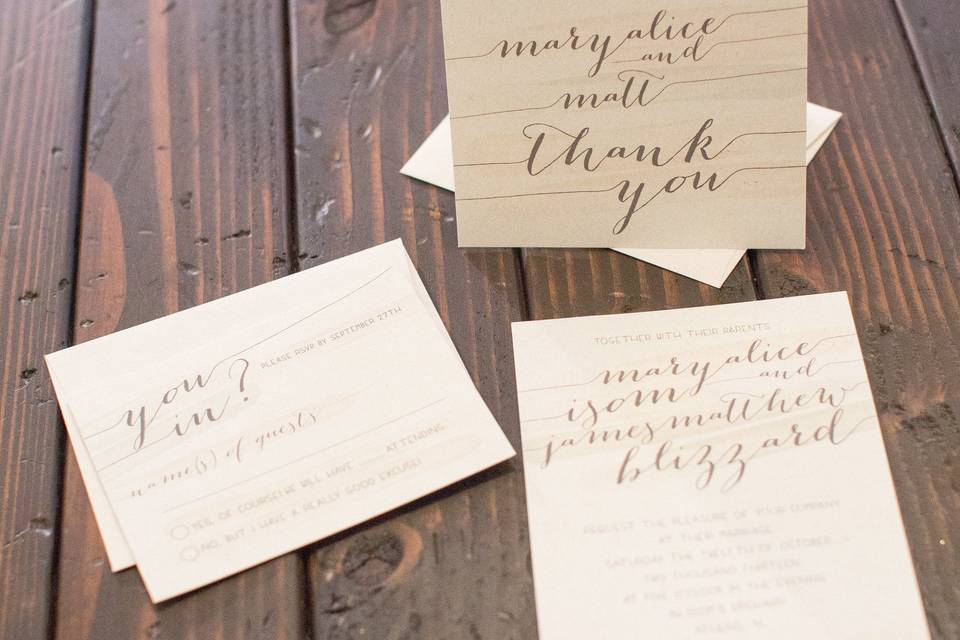 mary alice
and
matt
thank
you
you
in?
PLEASE RSVP BY SEPTEMBER 27TH
name(s) of guests
YES, OF COURSE! WE WILL HAVE ATTENDING.
NO, BUT I HAVE A REALLY GOOD EXCUSE!
TOGETHER WITH THEIR PARENTS
mary alice
isom and
james matthew
blizzard
REQUEST THE PLEASURE OF YOUR COMPANY
AT THEIR MARRIAGE
SATURDAY THE TWELFTH OF OCTOBER
TWO THOUSAND THIRTEEN
AT FIVE O'CLOCK IN THE EVENING